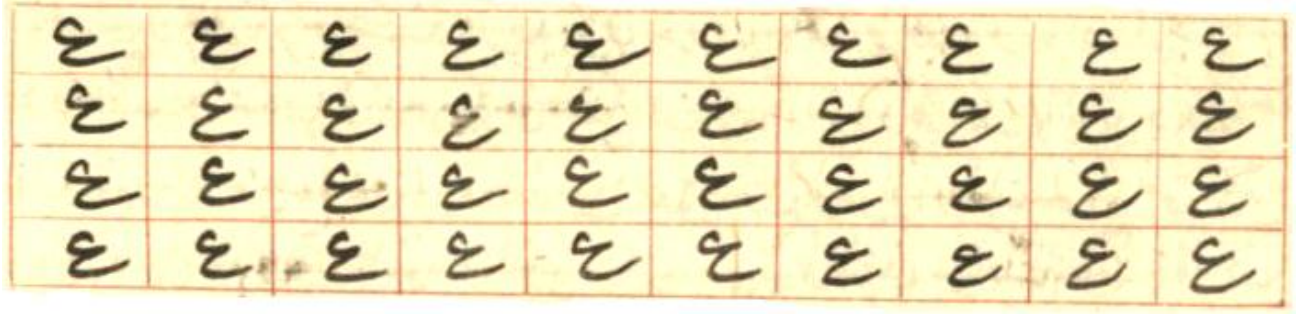 ع ع ع ع ع ع ع ع ع ع
ع ع ع ع ع ع ع ع ع ع
ع ع ع ع ع ع ع ع ع ع
ع ع ع ع ع ع ع ع ع ع